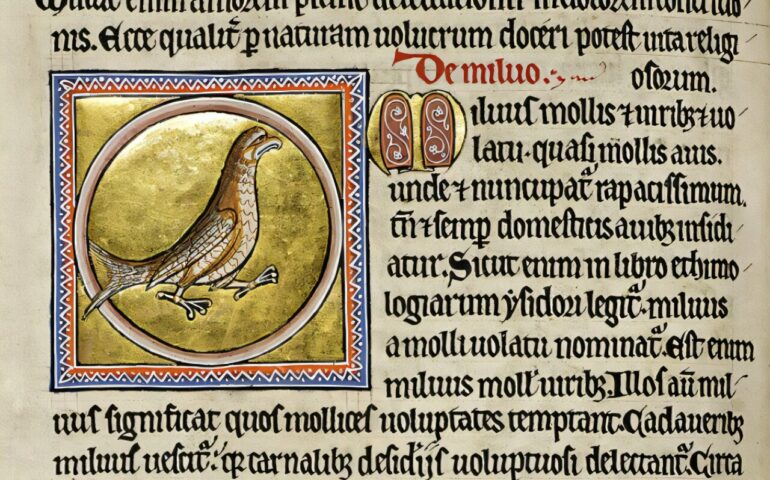 nis. Ecce qualit̉ ꝑ naturam uolucrum doceri potest uita religi
De miluo. osorum.
Miluus mollis ⁊ uirib; ⁊ uo
latu. quasi mollis auis.
unde ⁊ nuncupat̉. rapacissimum.
tn̄ ⁊ semꝑ domesticis auib; insidi
atur. Sicut enim in libro ethimo
logiarum ysidori legit̉. miluus
a molli uolatu nominat̉. Est enim
miluus moll̓ uirib;. Illos aū mil
uus significat quos mollices uoluptates temptant. Cadauerib;
miluus uescit̉. q̄ carnalib; desidijs uoluptuosi delectant̉. Circa